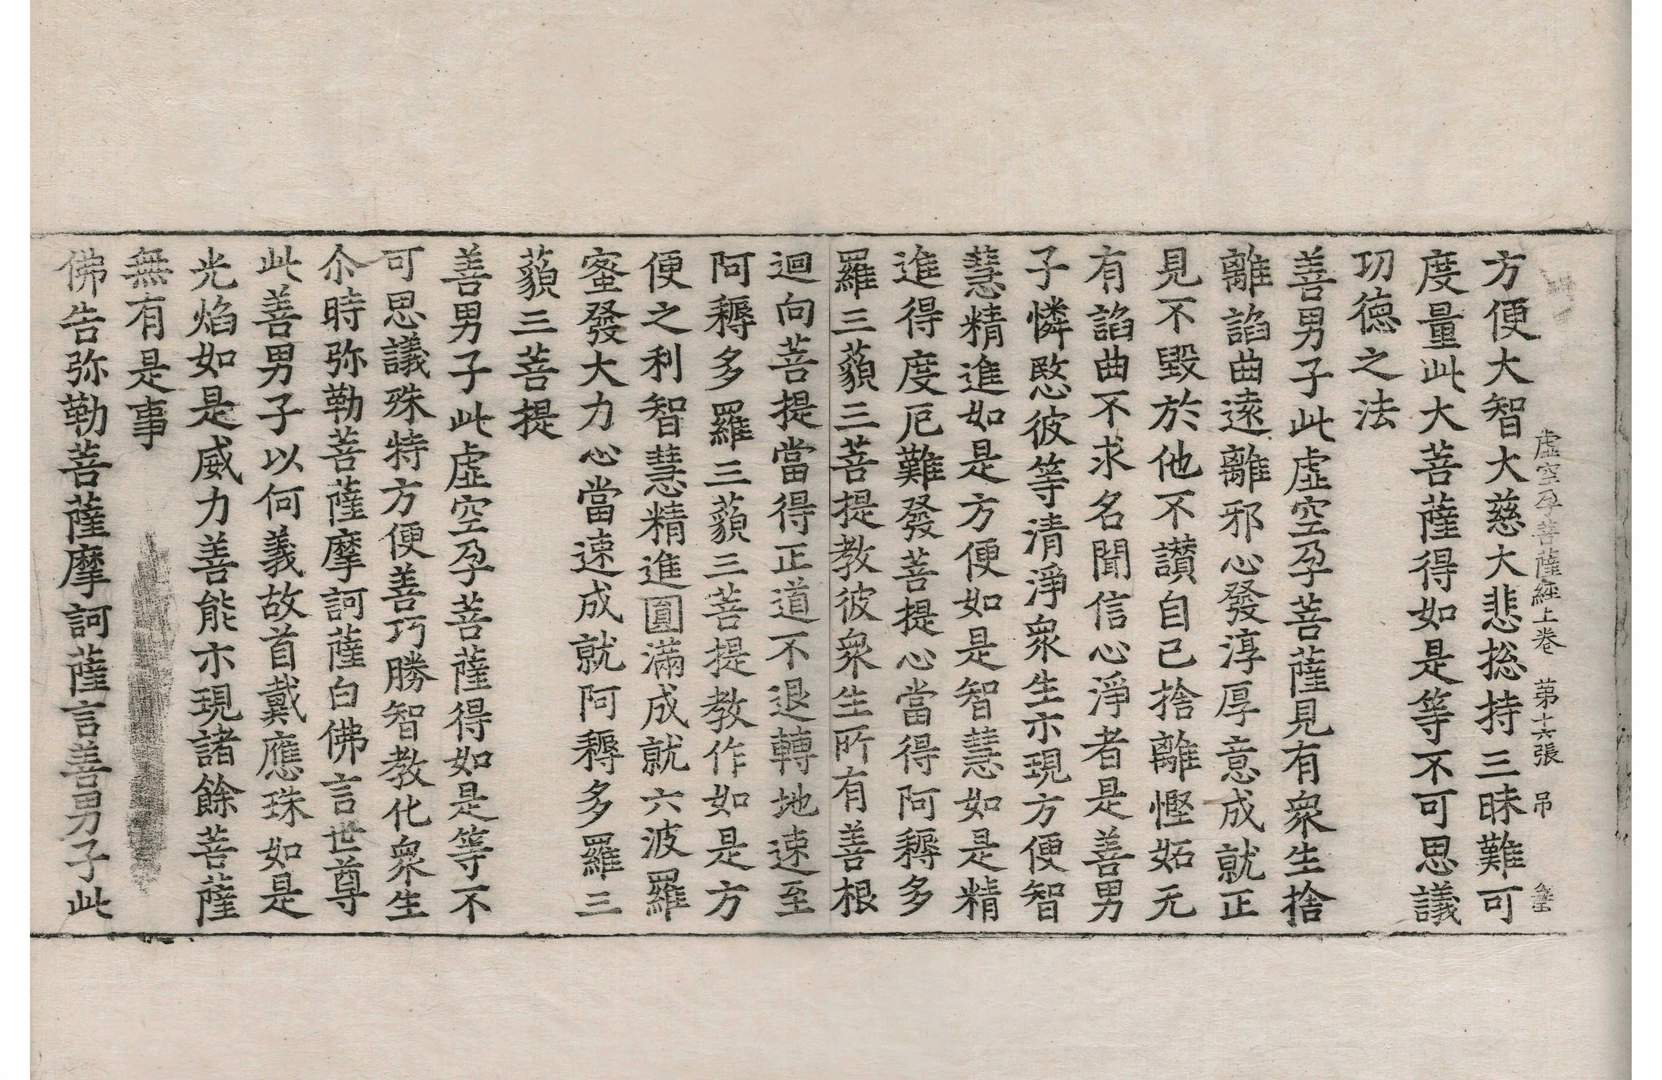 虛空孕菩薩經上卷　苐十六張　吊
方便大智大慈大悲捴持三昧難可
度量此大菩薩得如是等不可思議
功德之法
善男子此虛空孕菩薩見有衆生捨
離諂曲遠離邪心發淳厚意成就正
見不毀於他不讃自己捨離慳妬无
有諂曲不求名聞信心淨者是善男
子憐愍彼等清淨衆生尒現方便智
慧精進如是方便如是智慧如是精
進得度厄難發菩提心當得阿耨多
羅三藐三菩提教彼衆生所有善根
迴向菩提當得正道不退轉地速至
阿耨多羅三藐三菩提教作如是方
便之利智慧精進圓滿成就六波羅
蜜發大力心當速成就阿耨多羅三
藐三菩提
善男子此虛空孕菩薩得如是等不
可思議殊特方便善巧勝智教化衆生
尒時弥勒菩薩摩訶薩白佛言世尊
此善男子以何義故首戴應珠如是
光焰如是威力善能亦現諸餘菩薩
無有是事
佛告弥勒菩薩摩訶薩言善男子此